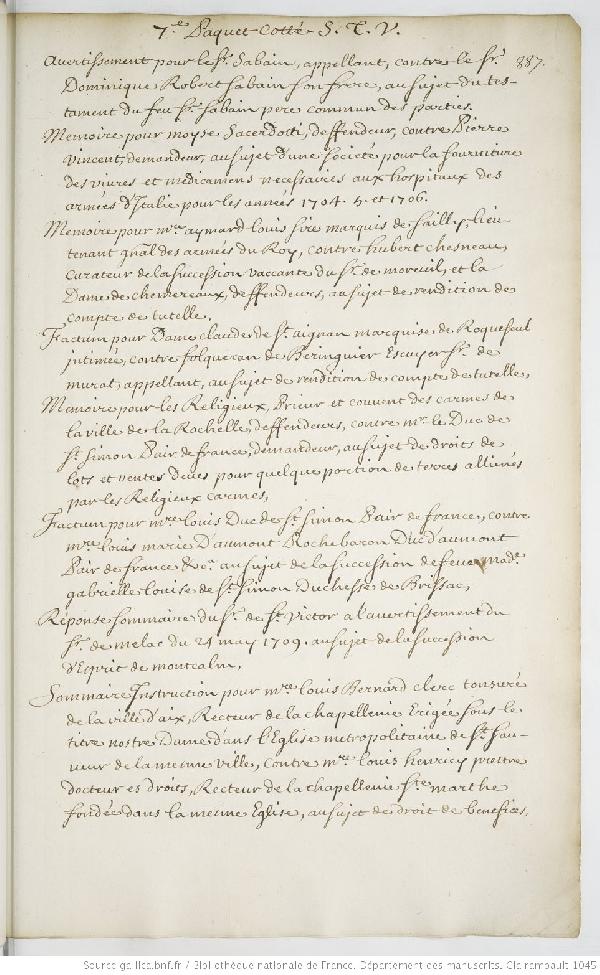 7.e Paquet Cotté S. T. V.
887.
Avertissement pour le Sr. Sabain, appellant, contre le Sr.
Dominique Robert Sabain son frere, au sujet du tes-
tament du feu Sr. Sabain pere commun des parties.
Memoire pour moyse Sacerdotti, deffendeur, contre Pierre
Vincent, demandeur, au sujet d'une Societé pour la fourniture
des vivres et medicamens necessaires aux hospitaux des
armées d'Italie pour les années 1704. 5. et 1706.
Memoire pour mre. aymard louis sire marquis de Sailly, lieu-
tenant gnal des armées du Roy, contre hubert chesneau,
curateur de la succession vaccante du Sr. de moreuil, et la
Dame de chemereaux, deffendeurs, au sujet de rendition de
compte de tutelle.
Factum pour Dame claude de St. aignan marquise de Roquefeul
intimée, contre folquecan de Beringuier Escuyer Sr. de
murat, appellant, au sujet de rendition de compte de tutelle,
Memoire pour les Religieux, Prieur et couvent des carmes de
la ville de la Rochelle, deffendeurs, contre mr. le Duc de
St. Simon Pair de france, demandeur, au sujet de droits de
lots et ventes deues pour quelque portion de terres allienés
par les Religieux carmes,
Factum pour mre. louis Duc de St. Simon Pair de france, contre
mre. louis marie D'aumont Rochebaron Duc d'aumont
Pair de france &c. au sujet de la succession de feue made.
gabrielle louise de St. Simon Duchesse de Brissac,
Réponse sommaire du Sr. de St. Victor a l'avertissement du
Sr. de melac du 24 may 1709. au sujet de la succession
d'Esprit de montcalm.
Sommaire Instruction pour mre. louis Bernard clerc tonsuré
de la ville d'aix, Recteur de la chapellenie Erigée sous le
titre nostre Dame dans l'Eglise metropolitaine de St. Sau-
veur de la mesme ville, contre mre. louis henricy prestre
docteur es droits, Recteur de la chapellenie Ste. marthe
fondée dans la mesme Eglise, au sujet de droit de benefices,
Source gallica.bnf.fr / Bibliothèque nationale de France. Département des manuscrits. Clairambault 1045